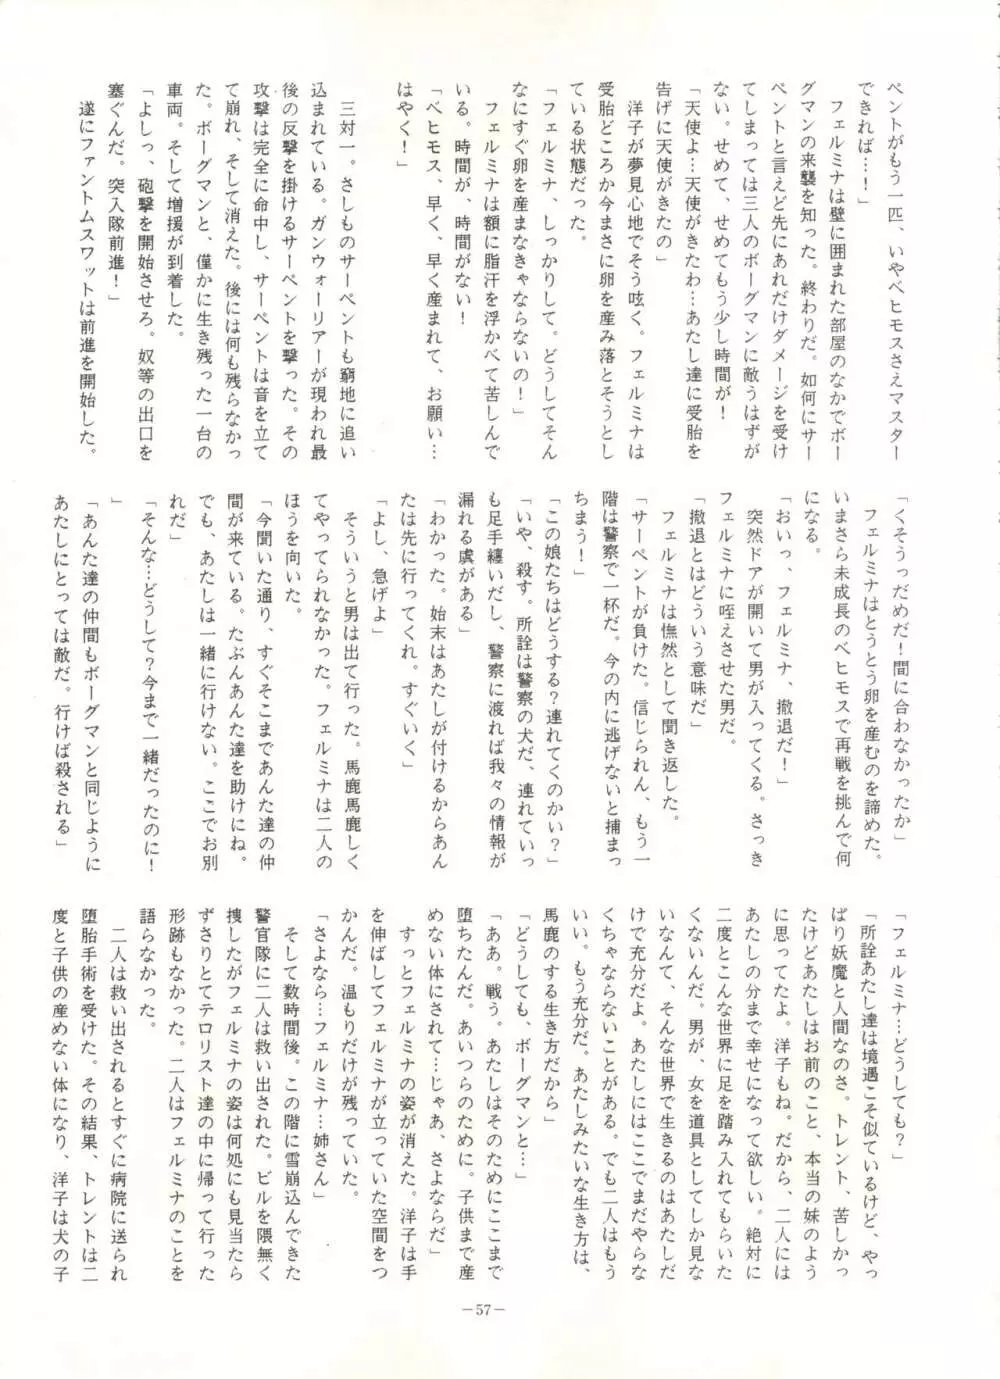 ペントがもう一匹、いやベヒモスさえマスター
できれば…！」
　フェルミナは壁に囲まれた部屋のなかでボー
グマンの来襲を知った。終わりだ。如何にサー
ペントと言えど先にあれだけダメージを受け
てしまっては三人のボーグマンに敵うはずが
ない。せめて、せめてもう少し時間が！
「天使よ…天使がきたわ…あたし達に受胎を
告げに天使がきたの」
　洋子が夢見心地でそう呟く。フェルミナは
受胎どころか今まさに卵を産み落とそうとし
ている状態だった。
「フェルミナ、しっかりして。どうしてそん
なにすぐ卵を産まなきゃならないの！」
　フェルミナは額に脂汗を浮かべて苦しんで
いる。時間が、時間がない！
「ベヒモス、早く、早く産まれて、お願い…
はやく！」
　三対一。さしものサーペントも窮地に追い
込まれている。ガンウォーリアーが現われ最
後の反撃を掛けるサーペントを撃った。その
攻撃は完全に命中し、サーペントは音を立て
て崩れ、そして消えた。後には何も残らなかっ
た。ボーグマンと、僅かに生き残った一台の
車両。そして増援が到着した。
「よしっ、砲撃を開始させろ。奴等の出口を
塞ぐんだ。突入隊前進！」
　遂にファントムスワットは前進を開始した。
「くそうっだめだ！間に合わなかったか」
　フェルミナはとうとう卵を産むのを諦めた。
いまさら未成長のベヒモスで再戦を挑んで何
になる。
「おいっ、フェルミナ、撤退だ！」
　突然ドアが開いて男が入ってくる。さっき
フェルミナに咥えさせた男だ。
「撤退とはどういう意味だ」
　フェルミナは憮然として聞き返した。
「サーペントが負けた。信じられん、もう一
階は警察で一杯だ。今の内に逃げないと捕まっ
ちまう！」
「この娘たちはどうする？連れてくのかい？」
「いや、殺す。所詮は警察の犬だ、連れていっ
も足手纏いだし、警察に渡れば我々の情報が
漏れる虞がある」
「わかった。始末はあたしが付けるからあん
たは先に行ってくれ。すぐいく」
「よし、急げよ」
　そういうと男は出て行った。馬鹿馬鹿しく
てやってられなかった。フェルミナは二人の
ほうを向いた。
「今聞いた通り、すぐそこまであんた達の仲
間が来ている。たぶんあんた達を助けにね。
でも、あたしは一緒に行けない。ここでお別
れだ」
「そんな…どうして？今まで一緒だったのに！
」
「あんた達の仲間もボーグマンと同じように
あたしにとっては敵だ。行けば殺される」
「フェルミナ…どうしても？」
「所詮あたし達は境遇こそ似ているけど、やっ
ぱり妖魔と人間なのさ。トレント、苦しかっ
たけどあたしはお前のこと、本当の妹のよう
に思ってたよ。洋子もね。だから、二人には
あたしの分まで幸せになって欲しい。絶対に
二度とこんな世界に足を踏み入れてもらいた
くないんだ。男が、女を道具としてしか見な
いなんて、そんな世界で生きるのはあたしだ
けで充分だよ。あたしにはここでまだやらな
くちゃならないことがある。でも二人はもう
いい。もう充分だ。あたしみたいな生き方は、
馬鹿のする生き方だから」
「どうしても、ボーグマンと…」
「ああ。戦う。あたしはそのためにここまで
堕ちたんだ。あいつらのために。子供まで産
めない体にされて…じゃあ、さよならだ」
　すっとフェルミナの姿が消えた。洋子は手
を伸ばしてフェルミナが立っていた空間をつ
かんだ。温もりだけが残っていた。
「さよなら…フェルミナ…姉さん」
　そして数時間後。この階に雪崩込んできた
警官隊に二人は救い出された。ビルを隈無く
捜したがフェルミナの姿は何処にも見当たら
ずさりとてテロリスト達の中に帰って行った
形跡もなかった。二人はフェルミナのことを
語らなかった。
　二人は救い出されるとすぐに病院に送られ
堕胎手術を受けた。その結果、トレントは二
度と子供の産めない体になり、洋子は犬の子
－57－